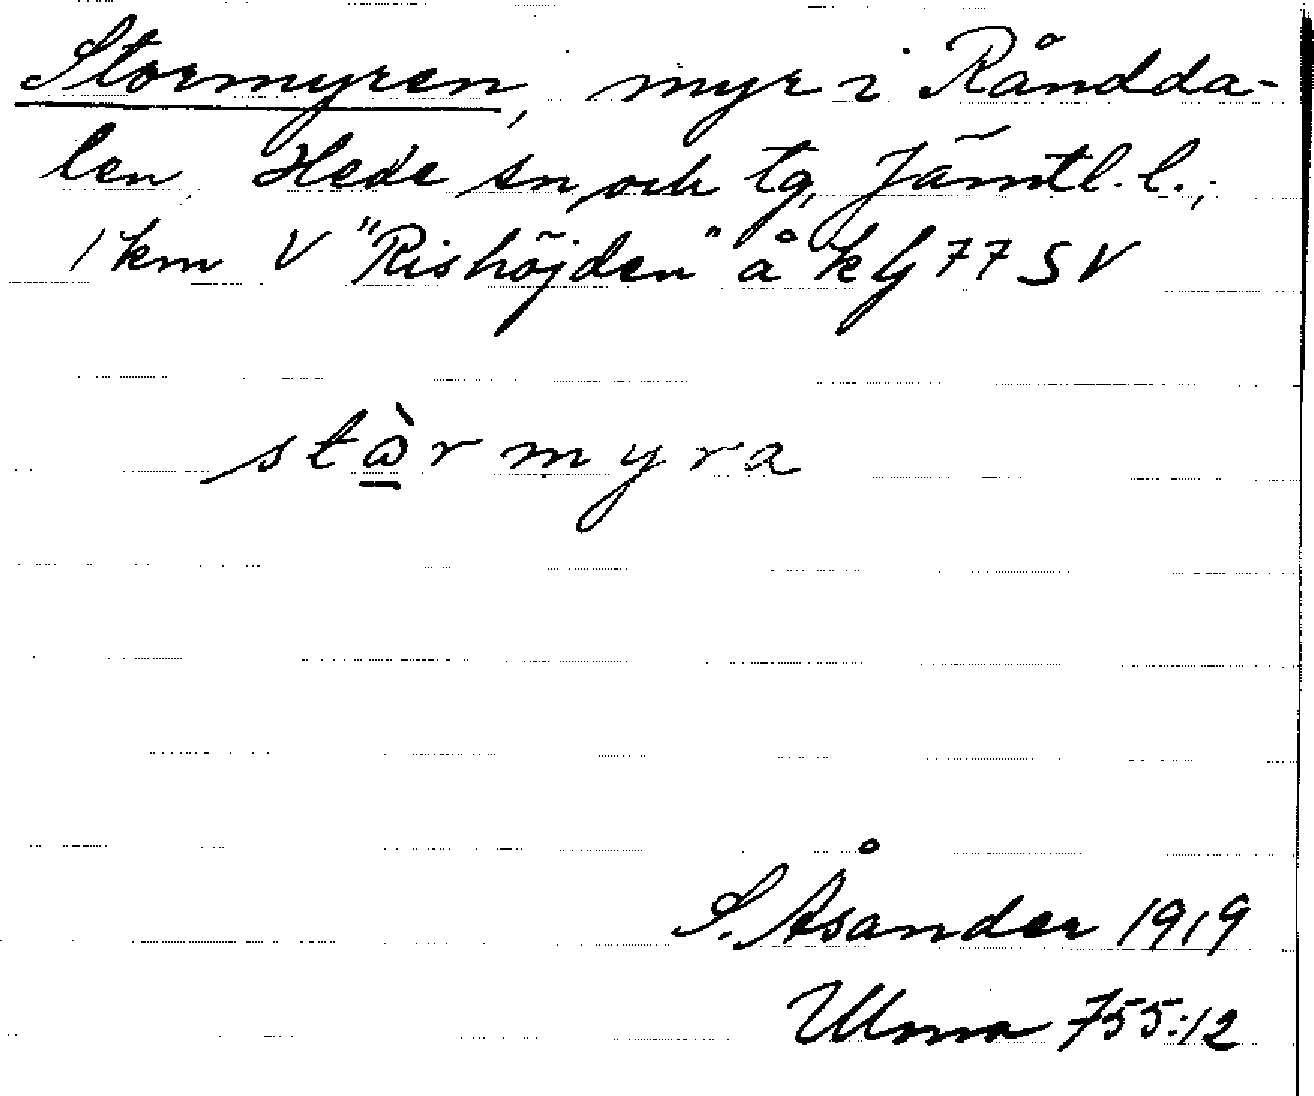 Stormyren, myr i Råndda-
len, Hede sn och tg, Jämtl. l.,
1 km V "Rishöjden" å kbl 77 SV
stὼrmyra
S. Åsander 1919
Ulma 755:12